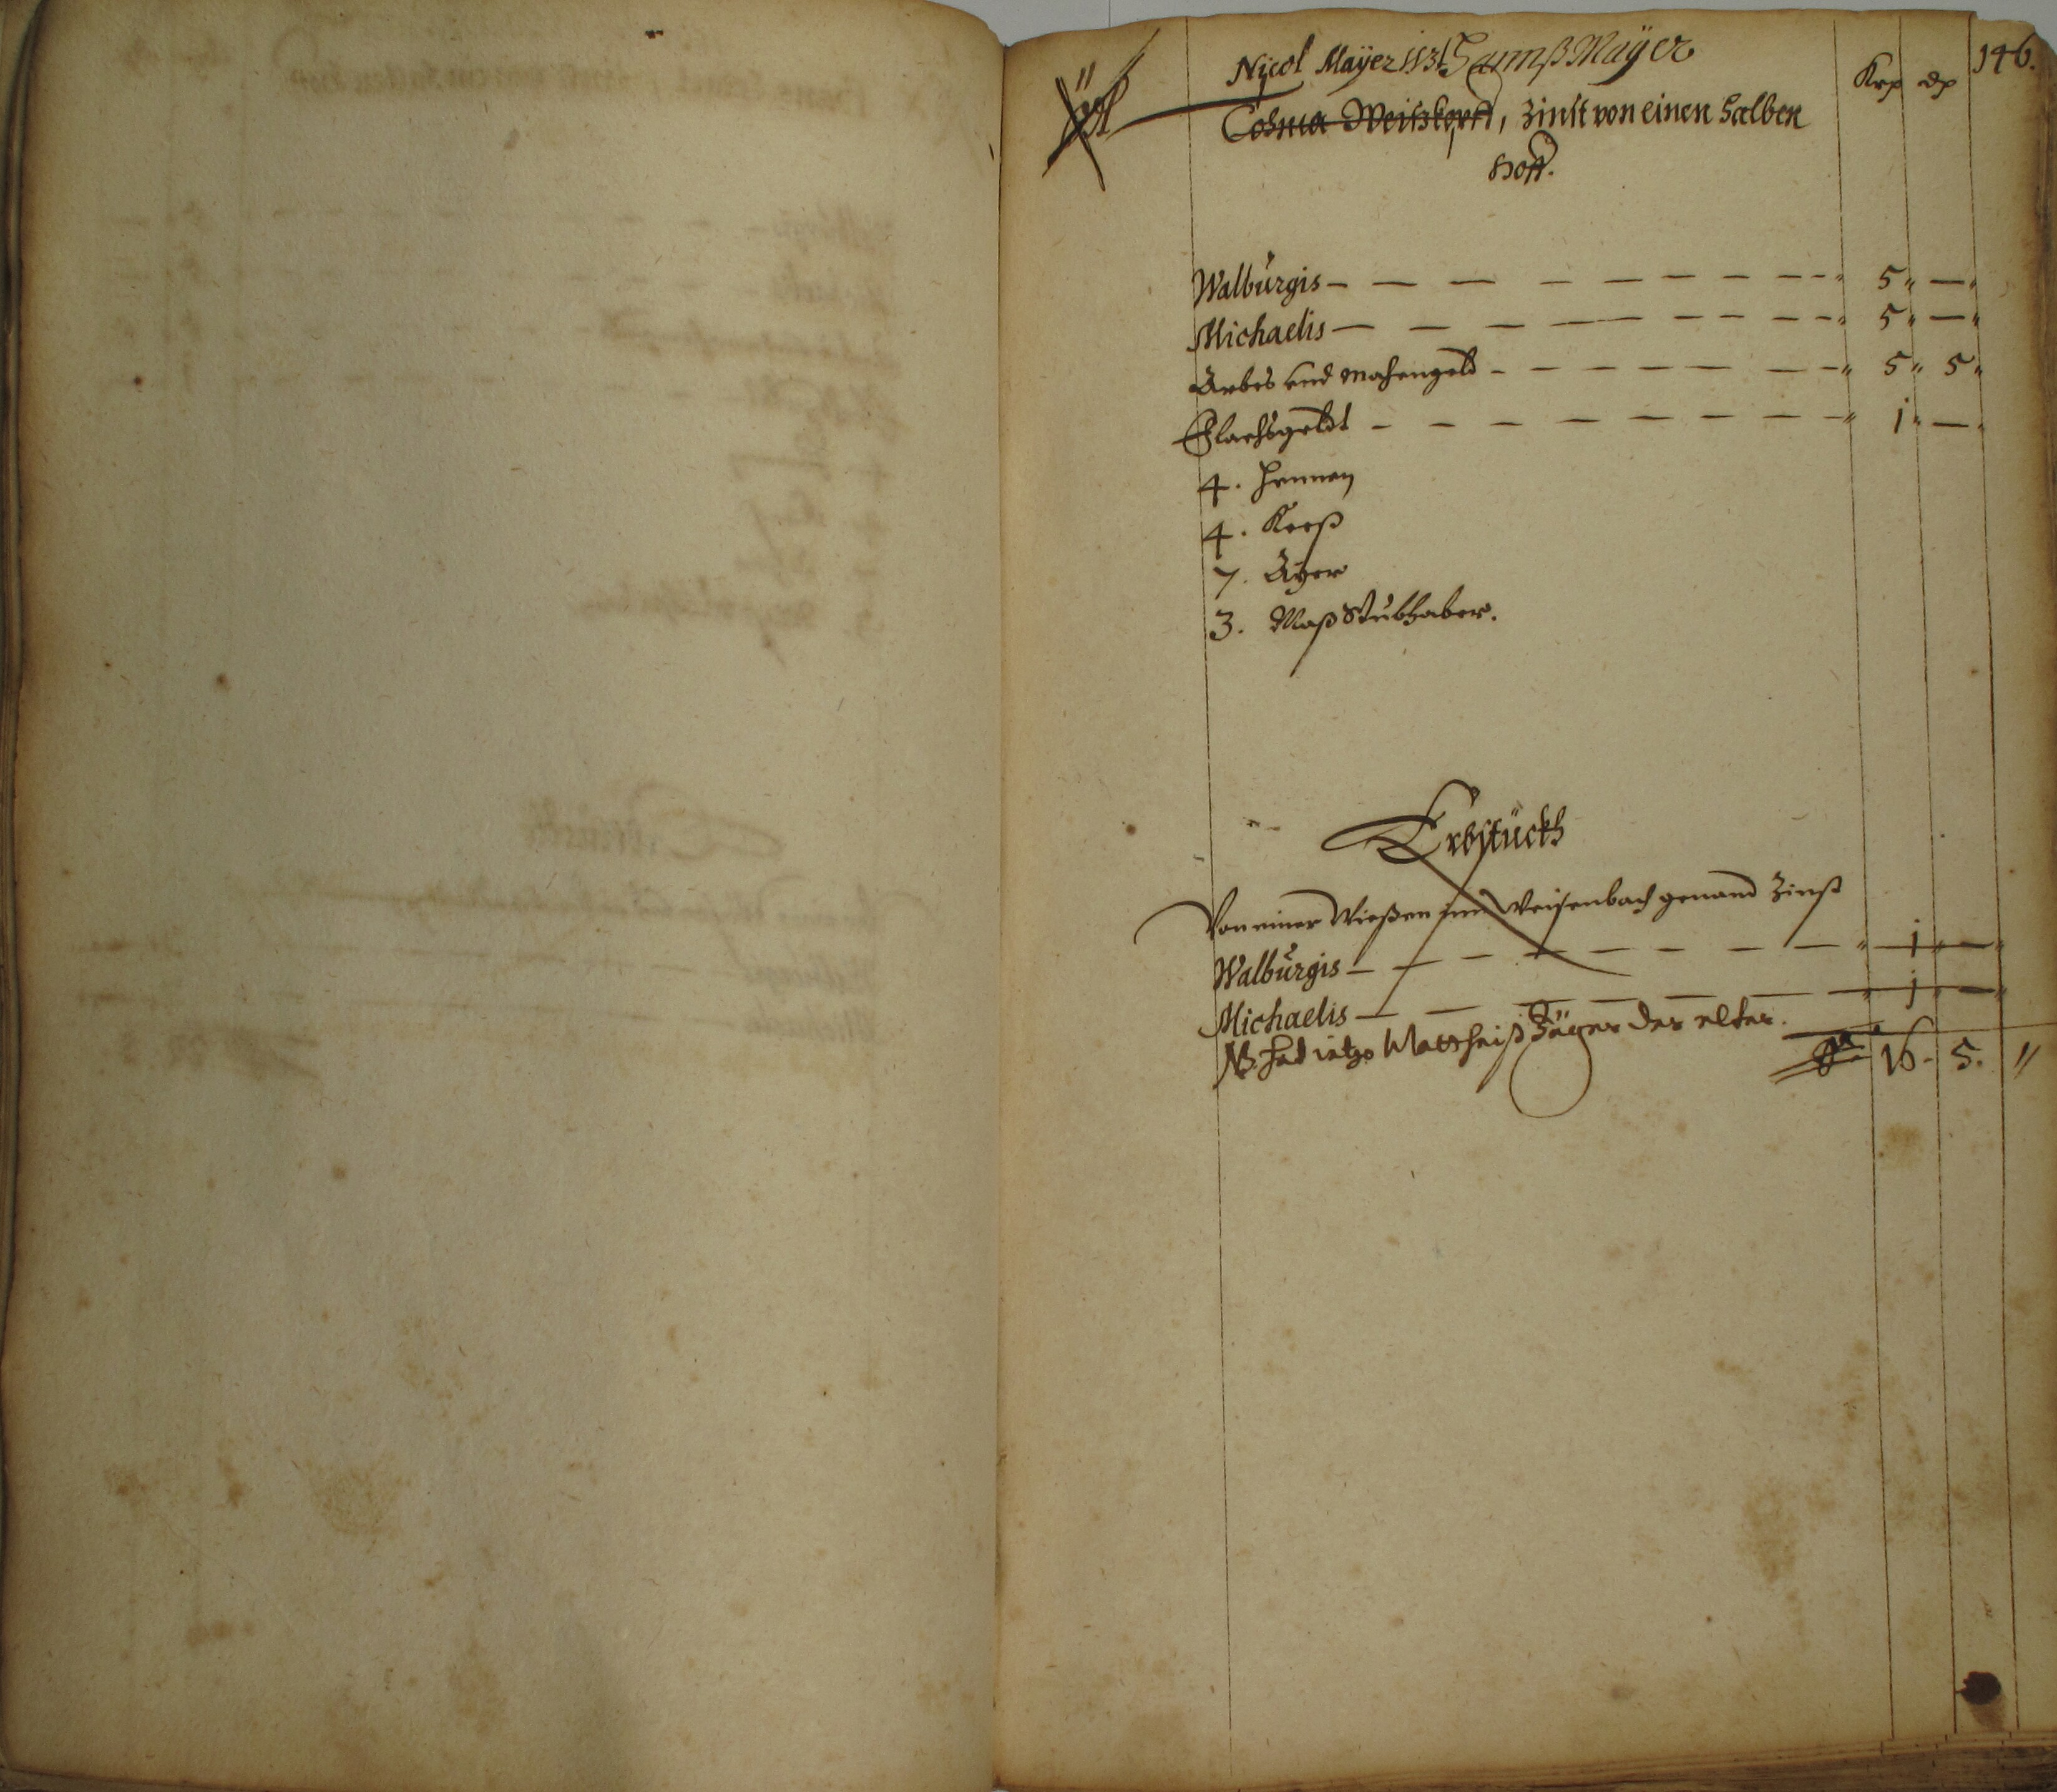 146.
Nicol Mayer Hannß Mayer
Coßma Weißkopff, Zinst von einen halben
Hoff.
Walburgis — — — — — — — — — " 5 " — "
Michaelis — — — — — — — — — " 5 " — "
Ärbes und Mohengeld — — — — — — — " 5 " 5 "
Flachsgeldt — — — — — — — — — " j " — "
4. Hennen
4. Keeß
7. Äyer
3. Maß Stubhaber.
Erbstückh
Von einer Wießen im Weisenbach genand Zinst
Walburgis — — — — — — — — " j " — "
Michaelis — — — — — — — — " j " — "
NB. hat ietzo Mattheiß Jäger der elter.
16. 5. "